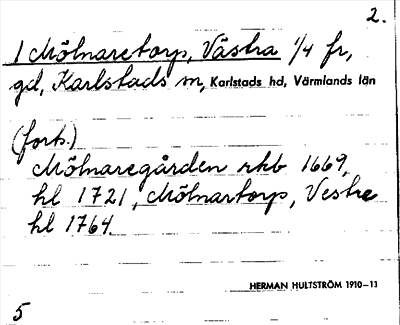 2.
1 Mölnaretorp, Västra 1/4 fr,
gd, Karlstads sn, Karlstads hd, Värmlands län
(forts.)
Mölnaregården rkb 1669,
hl 1721, Mölnartorp, Vestre
hl 1764
HERMAN HULTSTRÖM 1910-11
5